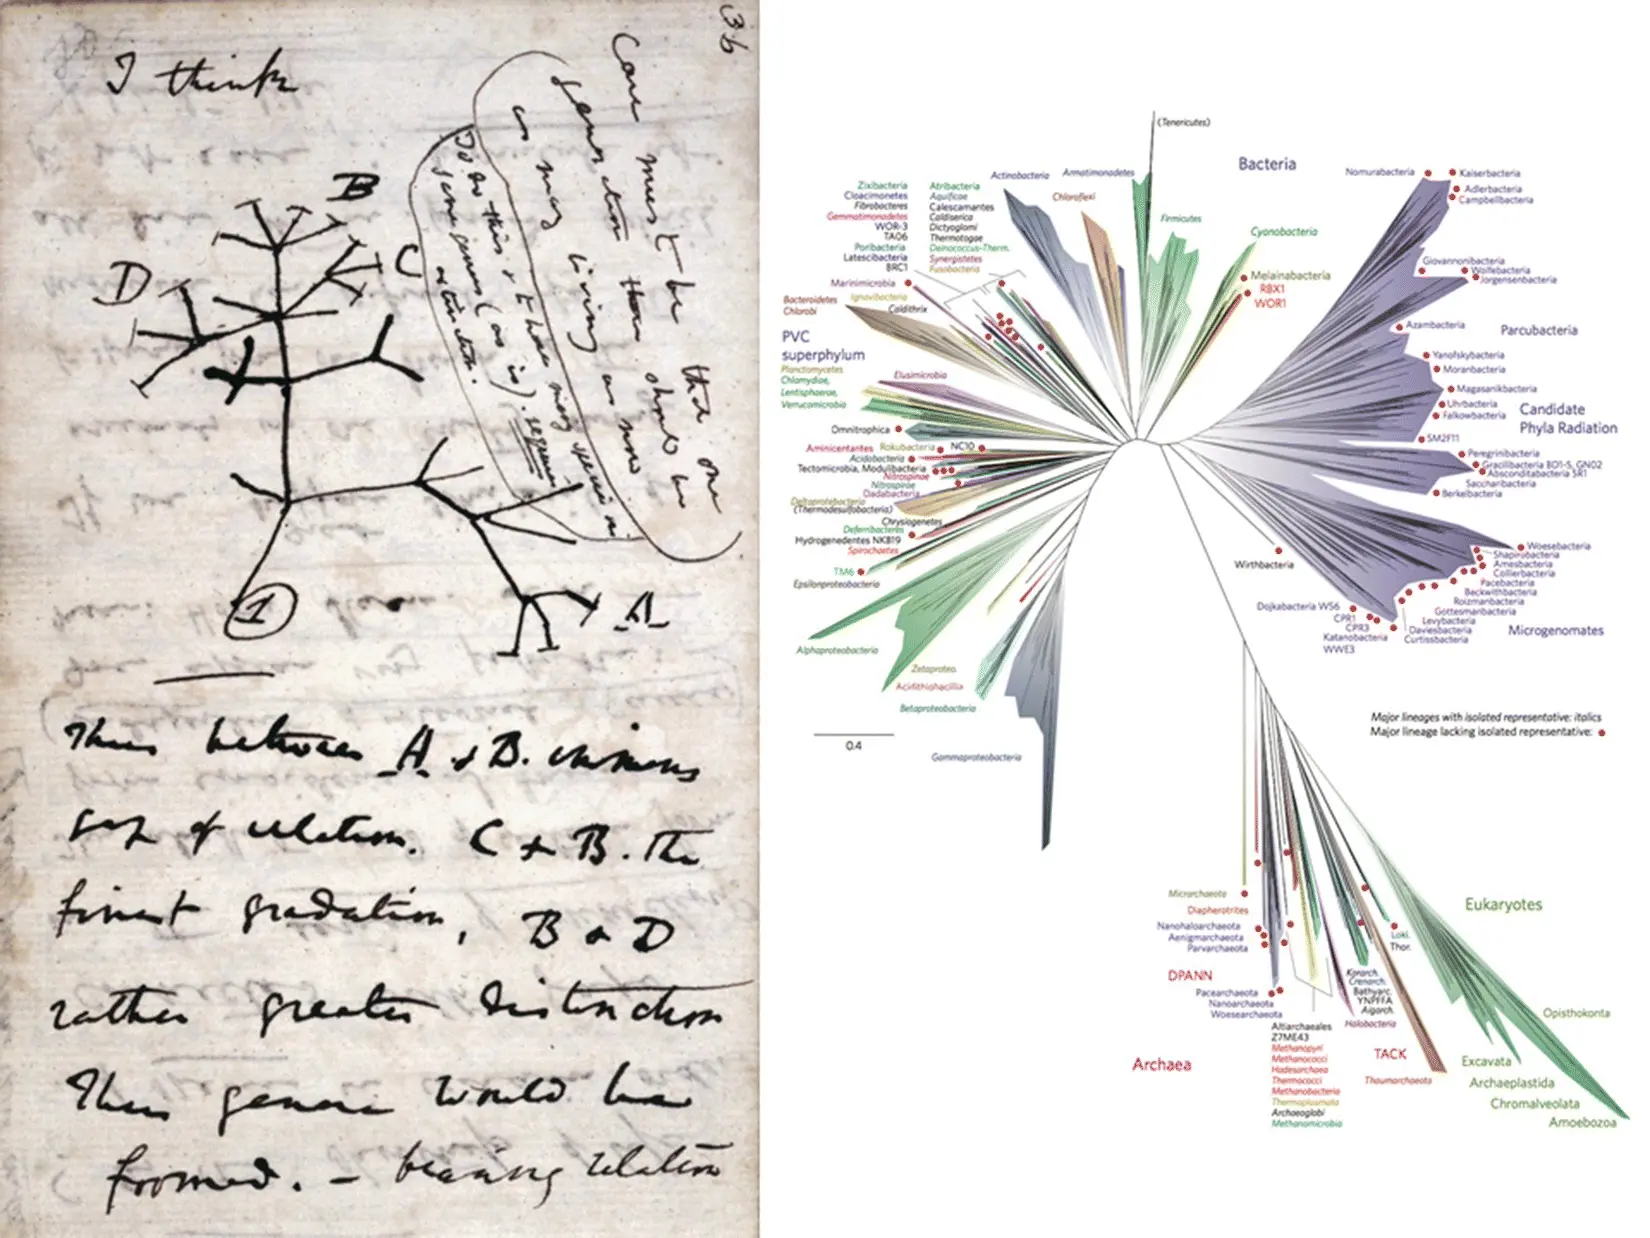 36
I think
Case must be that one
generation then should be
as many living as now
To do this & to have many species in
same genus (as is). requires
extinction.
B
C
D
1
A
Thus between A & B. immens
gap of relation. C & B. The
finest gradation, B & D
rather greater distinction
Thus genera would be
formed. — bearing relation
(Tenericutes)
Bacteria
Actinobacteria
Armatimonadetes
Chloroflexi
Firmicutes
Cyanobacteria
Melainabacteria
RBX1
WOR1
Zixibacteria
Cloacimonetes
Fibrobacteres
Gemmatimonadetes
WOR-3
TA06
Poribacteria
Latescibacteria
BRC1
Atribacteria
Aquificae
Calescamantes
Caldiserica
Dictyoglomi
Thermotogae
Deinococcus-Therm.
Synergistetes
Fusobacteria
Marinimicrobia
Ignavibacteria
Bacteroidetes
Chlorobi
Caldithrix
PVC
superphylum
Planctomycetes
Chlamydiae,
Lentisphaerae,
Verrucomicrobia
Elusimicrobia
Omnitrophica
Aminicentantes
Rokubacteria
NC10
Acidobacteria
Tectomicrobia, Modulibacteria
Nitrospinae
Nitrospirae
Dadabacteria
Deltaproteobacteria
(Thermodesulfobacteria)
Chrysiogenetes
Deferribacteres
Hydrogenedentes NKB19
Spirochaetes
TM6
Epsilonproteobacteria
Alphaproteobacteria
Zetaproteo.
Acidithiobacillia
Betaproteobacteria
Gammaproteobacteria
0.4
Nomurabacteria
Kaiserbacteria
Adlerbacteria
Campbellbacteria
Giovannonibacteria
Wolfebacteria
Jorgensenbacteria
Azambacteria
Parcubacteria
Yanofskybacteria
Moranbacteria
Magasanikbacteria
Uhrbacteria
Falkowbacteria
Candidate
Phyla Radiation
SM2F11
Peregrinibacteria
Gracilibacteria BD1-5, GN02
Absconditabacteria SR1
Saccharibacteria
Berkelbacteria
Woesebacteria
Shapirobacteria
Amesbacteria
Collierbacteria
Pacebacteria
Beckwithbacteria
Roizmanbacteria
Gottesmanbacteria
Levybacteria
Daviesbacteria
Curtissbacteria
Microgenomates
Wirthbacteria
Dojkabacteria WS6
CPR1
CPR3
Katanobacteria
WWE3
Major lineages with isolated representative: italics
Major lineage lacking isolated representative:
Micrarchaeota
Diapherotrites
Nanohaloarchaeota
Aenigmarchaeota
Parvarchaeota
DPANN
Pacearchaeota
Nanoarchaeota
Woesearchaeota
Archaea
Altiarchaeales
Z7ME43
Methanopyri
Methanococci
Hadesarchaea
Thermococci
Methanobacteria
Thermoplasmata
Archaeoglobi
Methanomicrobia
Halobacteria
Loki.
Thor.
Korarch.
Crenarch.
Bathyarc.
YNPFFA
Aigarch.
TACK
Thaumarchaeota
Eukaryotes
Opisthokonta
Excavata
Archaeplastida
Chromalveolata
Amoebozoa